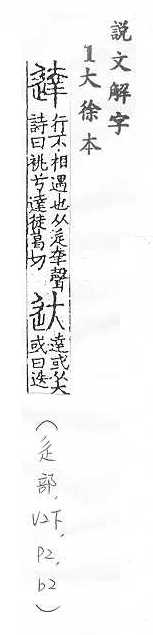 説文解字
1大徐本
達
行不相遇也从辵羍聲
詩曰挑兮達徒葛切
达
達或从大
或曰迭
(辵部, V2下, P2, b2)